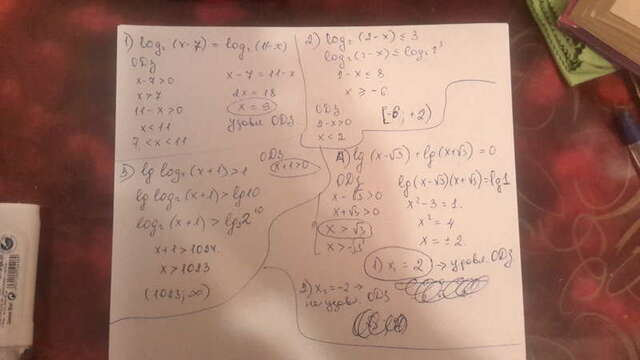 1) log₂ (x-7) = log₂ (11-x)
ОДЗ
x-7>0
x>7
11-x>0
x<11
7<x<11
x-7=11-x
2x=18
x=9
удовл ОДЗ
2) log₂ (2-x) ≤ 3
log₂ (2-x) ≤ log₂ 2³
2-x ≤ 8
x ≥ -6
ОДЗ
2-x>0
x<2
[-6; +2)
3) lg log₂ (x+1) > 1
ОДЗ
x+1>0
lg log₂ (x+1) > lg10
log₂ (x+1) > log₂2¹⁰
x+1>1024.
x>1023
(1023; ∞)
4) lg (x-√3) + lg (x+√3) = 0
ОДЗ
x-√3>0
x+√3>0
x>√3
x>-√3
lg (x-√3)(x+√3) = lg1
x²-3=1.
x²=4
x=±2.
1) x₁=2 → удовл. ОДЗ
2) x₂=-2 →
не удовл. ОДЗ